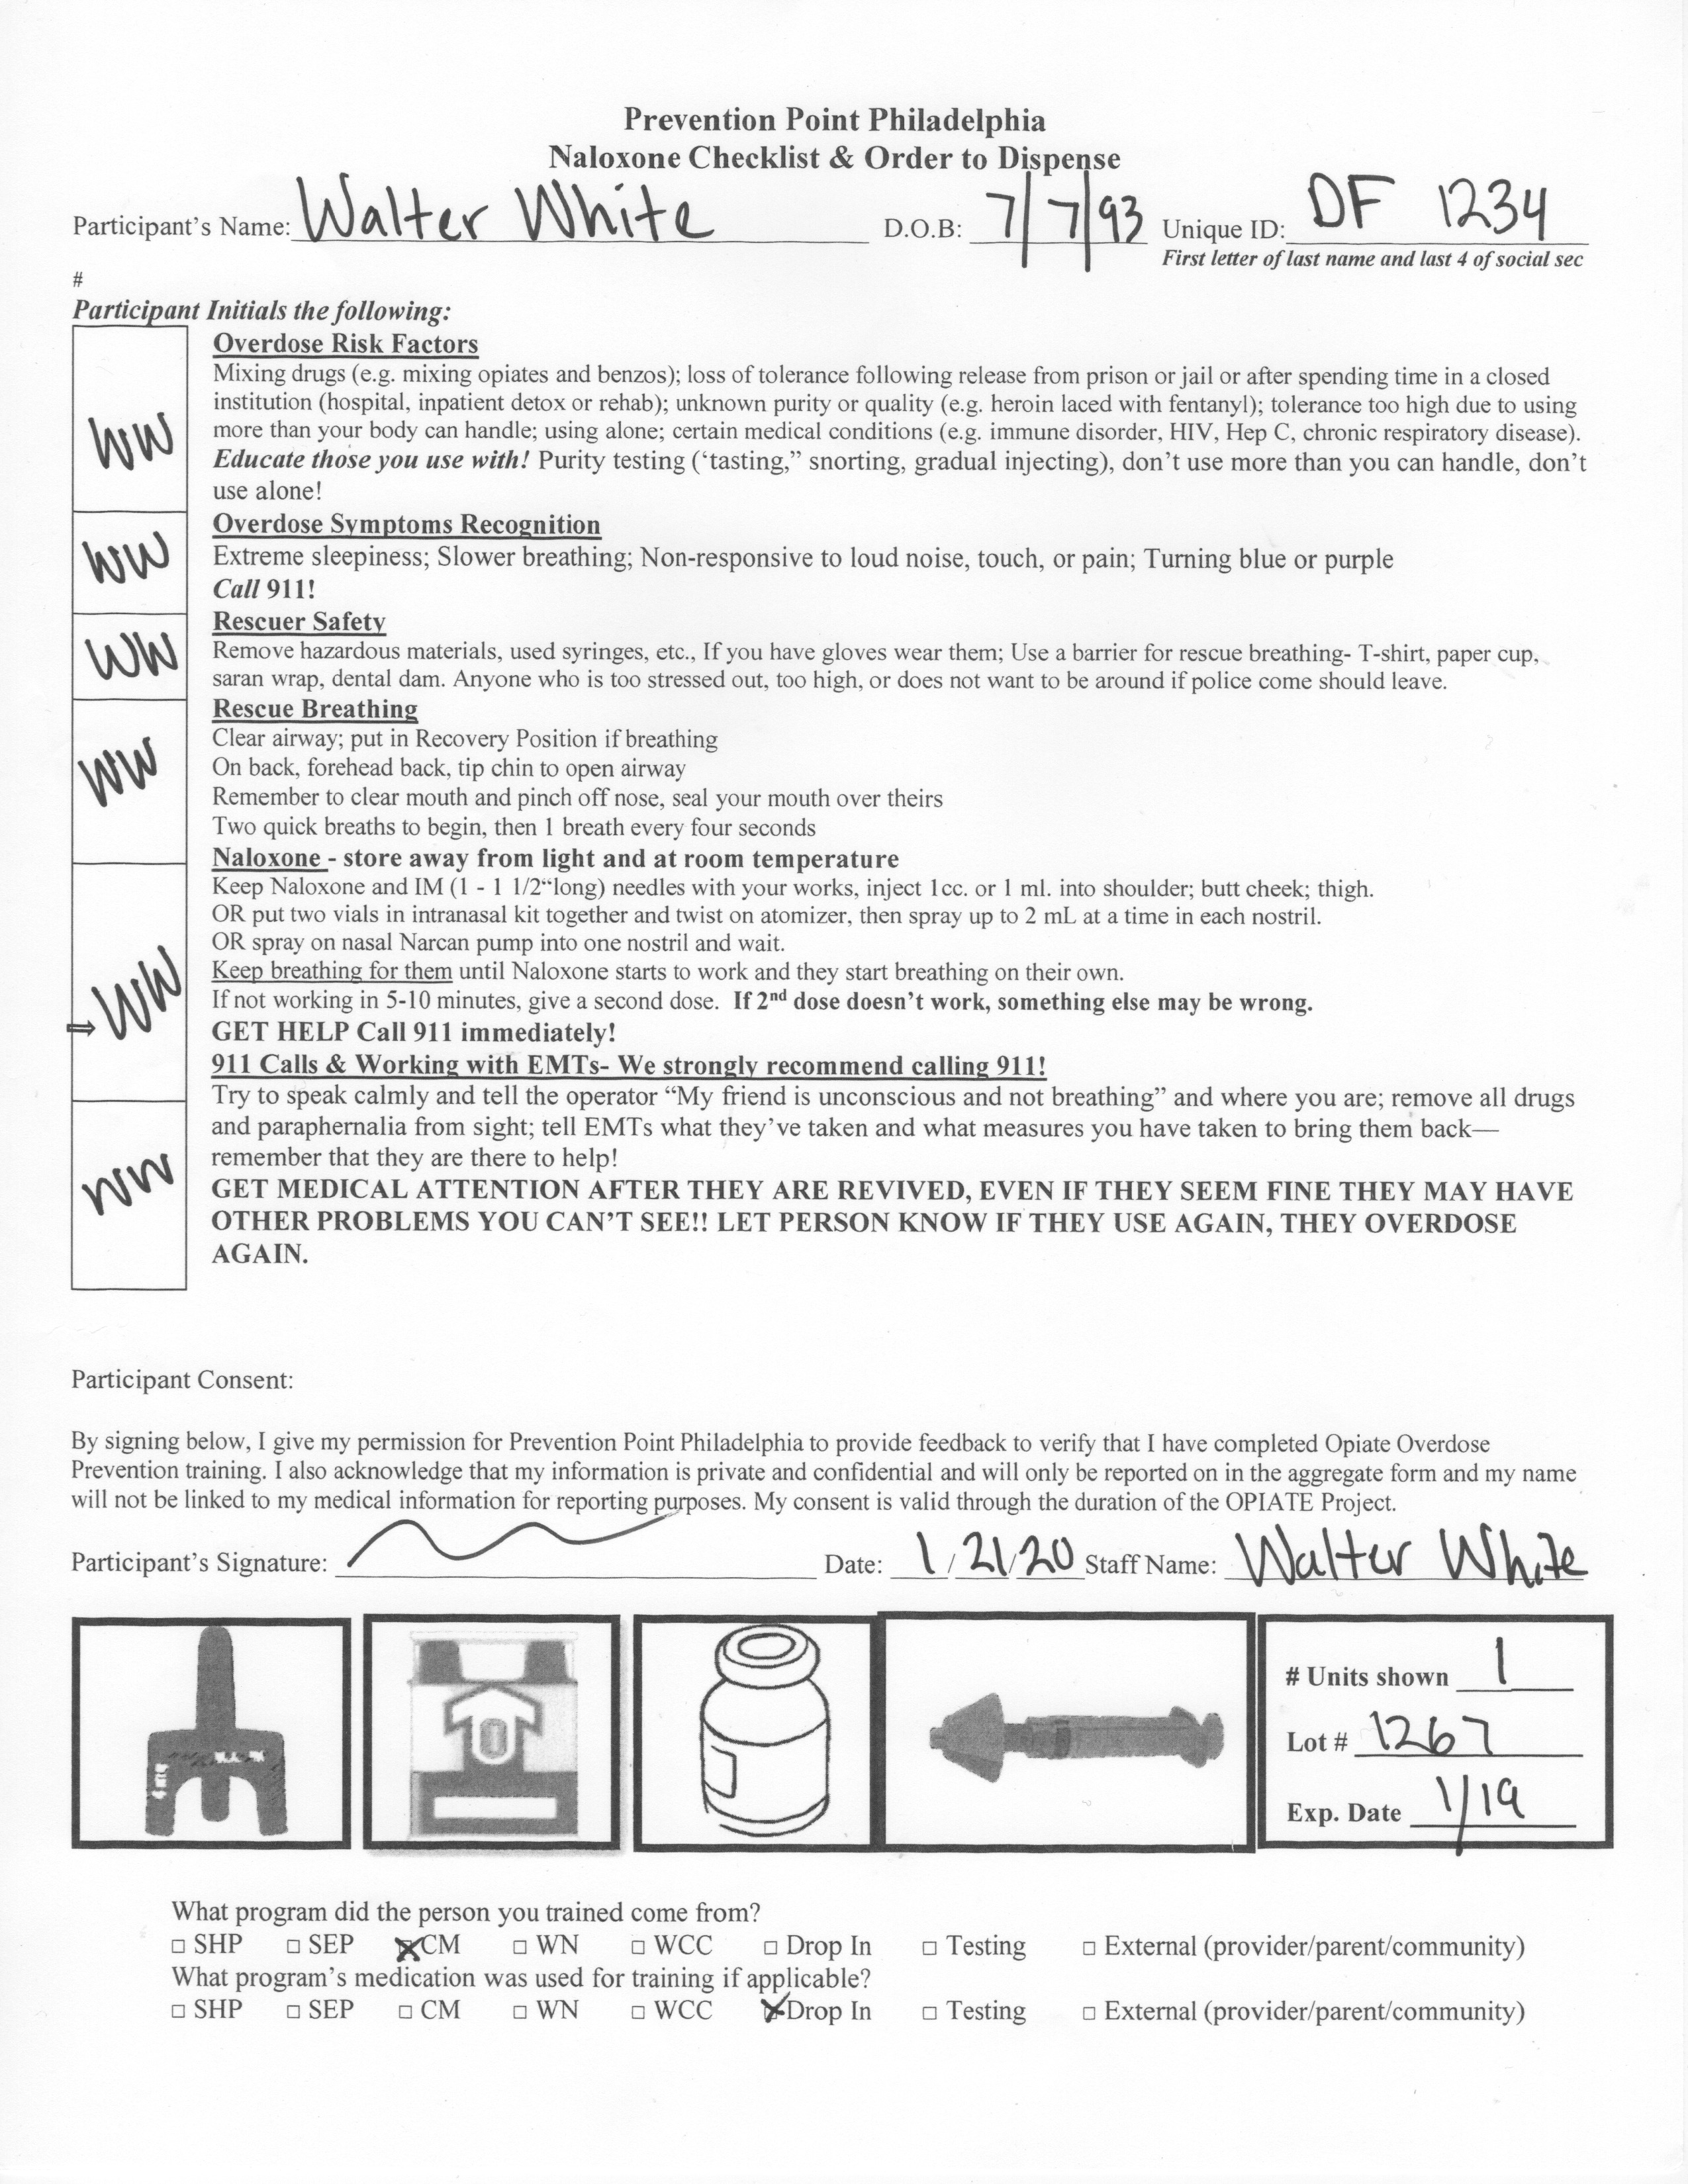 Prevention Point Philadelphia
Naloxone Checklist & Order to Dispense
Participant's Name: Walter White D.O.B: 7/7/93 Unique ID: DF 1234
First letter of last name and last 4 of social sec
#
Participant Initials the following:
Overdose Risk Factors
Mixing drugs (e.g. mixing opiates and benzos); loss of tolerance following release from prison or jail or after spending time in a closed
institution (hospital, inpatient detox or rehab); unknown purity or quality (e.g. heroin laced with fentanyl); tolerance too high due to using
WW more than your body can handle; using alone; certain medical conditions (e.g. immune disorder, HIV, Hep C, chronic respiratory disease).
Educate those you use with! Purity testing (‘tasting,” snorting, gradual injecting), don’t use more than you can handle, don’t
use alone!
Overdose Symptoms Recognition
WW Extreme sleepiness; Slower breathing; Non-responsive to loud noise, touch, or pain; Turning blue or purple
Call 911!
Rescuer Safety
WW Remove hazardous materials, used syringes, etc., If you have gloves wear them; Use a barrier for rescue breathing- T-shirt, paper cup,
saran wrap, dental dam. Anyone who is too stressed out, too high, or does not want to be around if police come should leave.
Rescue Breathing
Clear airway; put in Recovery Position if breathing
WW On back, forehead back, tip chin to open airway
Remember to clear mouth and pinch off nose, seal your mouth over theirs
Two quick breaths to begin, then 1 breath every four seconds
Naloxone - store away from light and at room temperature
Keep Naloxone and IM (1 - 1 1/2“long) needles with your works, inject 1cc. or 1 ml. into shoulder; butt cheek; thigh.
OR put two vials in intranasal kit together and twist on atomizer, then spray up to 2 mL at a time in each nostril.
OR spray on nasal Narcan pump into one nostril and wait.
Keep breathing for them until Naloxone starts to work and they start breathing on their own.
⇒ WW If not working in 5-10 minutes, give a second dose. If 2nd dose doesn’t work, something else may be wrong.
GET HELP Call 911 immediately!
911 Calls & Working with EMTs- We strongly recommend calling 911!
Try to speak calmly and tell the operator “My friend is unconscious and not breathing” and where you are; remove all drugs
and paraphernalia from sight; tell EMTs what they’ve taken and what measures you have taken to bring them back—
remember that they are there to help!
WW GET MEDICAL ATTENTION AFTER THEY ARE REVIVED, EVEN IF THEY SEEM FINE THEY MAY HAVE
OTHER PROBLEMS YOU CAN’T SEE!! LET PERSON KNOW IF THEY USE AGAIN, THEY OVERDOSE
AGAIN.
Participant Consent:
By signing below, I give my permission for Prevention Point Philadelphia to provide feedback to verify that I have completed Opiate Overdose
Prevention training. I also acknowledge that my information is private and confidential and will only be reported on in the aggregate form and my name
will not be linked to my medical information for reporting purposes. My consent is valid through the duration of the OPIATE Project.
Participant’s Signature: Date: 1/21/20 Staff Name: Walter White
# Units shown 1
Lot # 1267
Exp. Date 1/19
What program did the person you trained come from?
□ SHP □ SEP ☒ CM □ WN □ WCC □ Drop In □ Testing □ External (provider/parent/community)
What program’s medication was used for training if applicable?
□ SHP □ SEP □ CM □ WN □ WCC ☒ Drop In □ Testing □ External (provider/parent/community)